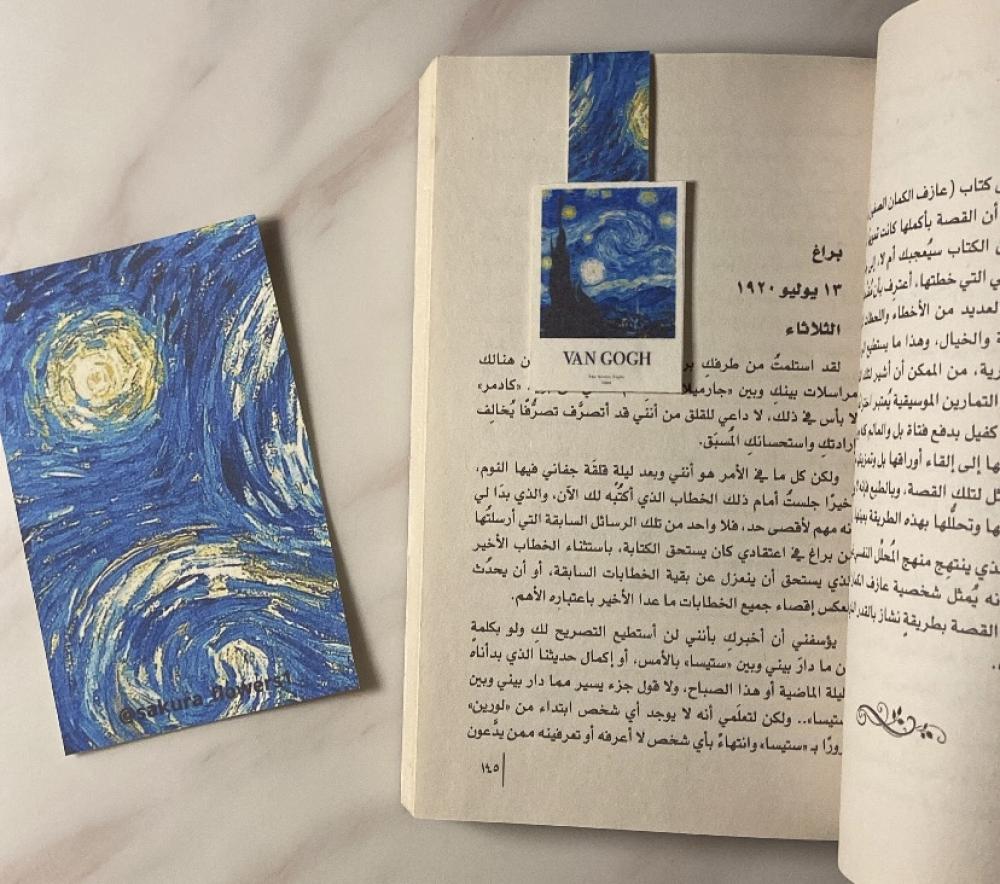 @sakura_flowers1
VAN GOGH
براغ
١٣ يوليو ١٩٢٠
الثلاثاء
لقد استلمتُ من طرفك هنالك
مراسلات بينك وبين «جارميلا «كادمر»
لا بأس في ذلك، لا داعي للقلق من أنني قد أتصرَّف تصرُّفًا يُخالِف
إرادتكِ واستحسانكِ المُسبَق.
ولكن كل ما في الأمر هو أنني وبعد ليلةٍ قلقَة جفاني فيها النوم،
أخيرًا جلستُ أمام ذلك الخطاب الذي أكتُبُه لك الآن، والذي بدَا لي
أنه مهم لأقصى حد، فلا واحد من تلك الرسائل السابقة التي أرسلتُها
من براغ في اعتقادي كان يستحق الكتابة، باستثناء الخطاب الأخير
الذي يستحق أن ينعزل عن بقية الخطابات السابقة، أو أن يحدُث
بعكس إقصاء جميع الخطابات ما عدا الأخير باعتباره الأهم.
يؤسفني أن أخبركِ بأنني لن أستطيع التصريح لك ولو بكلمةٍ
عن ما دارَ بيني وبين «ستيسا» بالأمس، أو إكمال حديثنا الذي بدأناه
ليلة الماضية أو هذا الصباح، ولا قول جزء يسير مما دار بيني وبين
ستيسا».. ولكن لتعلَمي أنه لا يوجد أي شخص ابتداء من «لورين»
مرورًا بـ «ستيسا» وانتهاءً بأي شخص لا أعرفه أو تعرفينه ممن يدَّعون
١٤٥
كتاب (عازف الكمان
أن القصة بأكملها كانت
الكتاب سيُعجبك أم لا،
التي خطتها، أعترِف بأن
العديد من الأخطاء
والخيال، وهذا ما يستطيع
من الممكن أن أشير
التمارين الموسيقية يُعتبر
كفيل بدفع فتاة بل والعالم
إلى إلقاء أوراقها بل
لتلك القصة، وبالطبع
وتحلُّلها بهذه الطريقة
الذي ينتهِج منهج المُحلِّل
أنه يُمثل شخصية عازف
القصة بطريقةٍ نشاز بالقدر